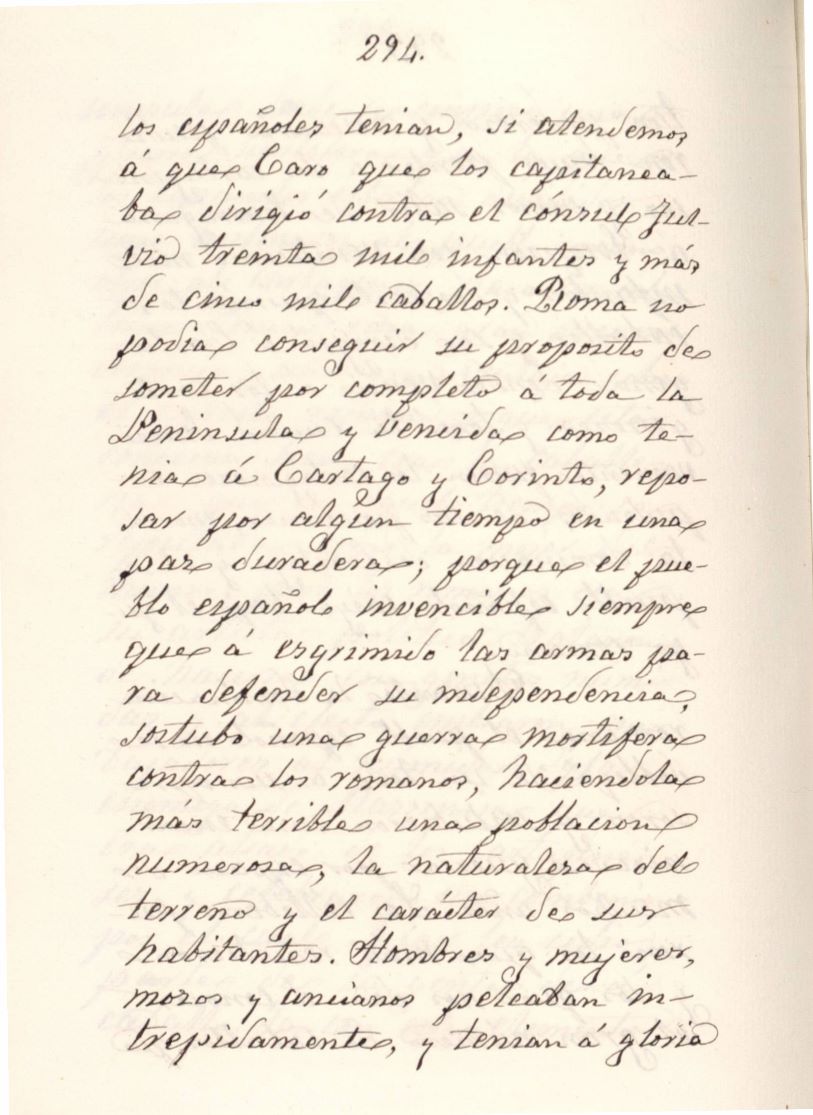 294.
los españoles tenian, si atendemos
á que Caro que los capitanea-
ba dirigió contra el cónsul Ful-
vio treinta mil infantes y más
de cinco mil caballos. Roma no
podia conseguir su proposito de
someter por completo á toda la
Peninsula y vencida como te-
nia á Cartago y Corinto, repo-
sar por algun tiempo en una
paz duradera; porque el pue-
blo español invencible siempre
que á esgrimido las armas pa-
ra defender su independencia,
sostubo una guerra mortifera
contra los romanos, haciendola
más terrible una poblacion
numerosa, la naturaleza del
terreno y el carácter de sus
habitantes. Hombres y mujeres,
mozos y ancianos peleaban in-
trepidamente, y tenian á gloria